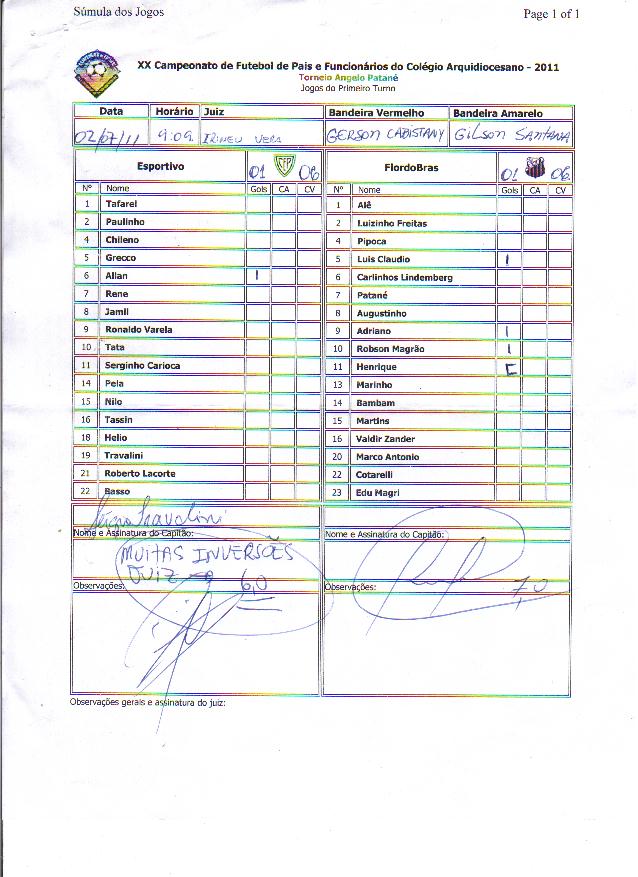 Súmula dos Jogos Page 1 of 1
XX Campeonato de Futebol de Pais e Funcionários do Colégio Arquidiocesano - 2011
Torneio Angelo Patané
Jogos do Primeiro Turno
Data Horário Juiz Bandeira Vermelho Bandeira Amarelo
02/07/11 9:09 IRINEU VERA GERSON CABISTANY GILSON SANTANA
Esportivo 01 CFP 06 FlordoBras 01 06
Nº Nome Gols CA CV Nº Nome Gols CA CV
1 Tafarel 1 Alê
2 Paulinho 2 Luizinho Freitas
4 Chileno 4 Pipoca
5 Grecco 5 Luis Claudio I
6 Allan I 6 Carlinhos Lindemberg
7 Rene 7 Patané
8 Jamil 8 Augustinho
9 Ronaldo Varela 9 Adriano I
10 Tata 10 Robson Magrão I
11 Serginho Carioca 11 Henrique
14 Pela 13 Marinho
15 Nilo 14 Bambam
16 Tassin 15 Martins
18 Helio 16 Valdir Zander
19 Travalini 20 Marco Antonio
21 Roberto Lacorte 22 Cotarelli
22 Basso 23 Edu Magri
Travalini
Nome e Assinatura do Capitão: Nome e Assinatura do Capitão:
MUITAS INVERSÕES
JUIZ 6,0 7,0
Observações: Observações:
Observações gerais e assinatura do juiz: